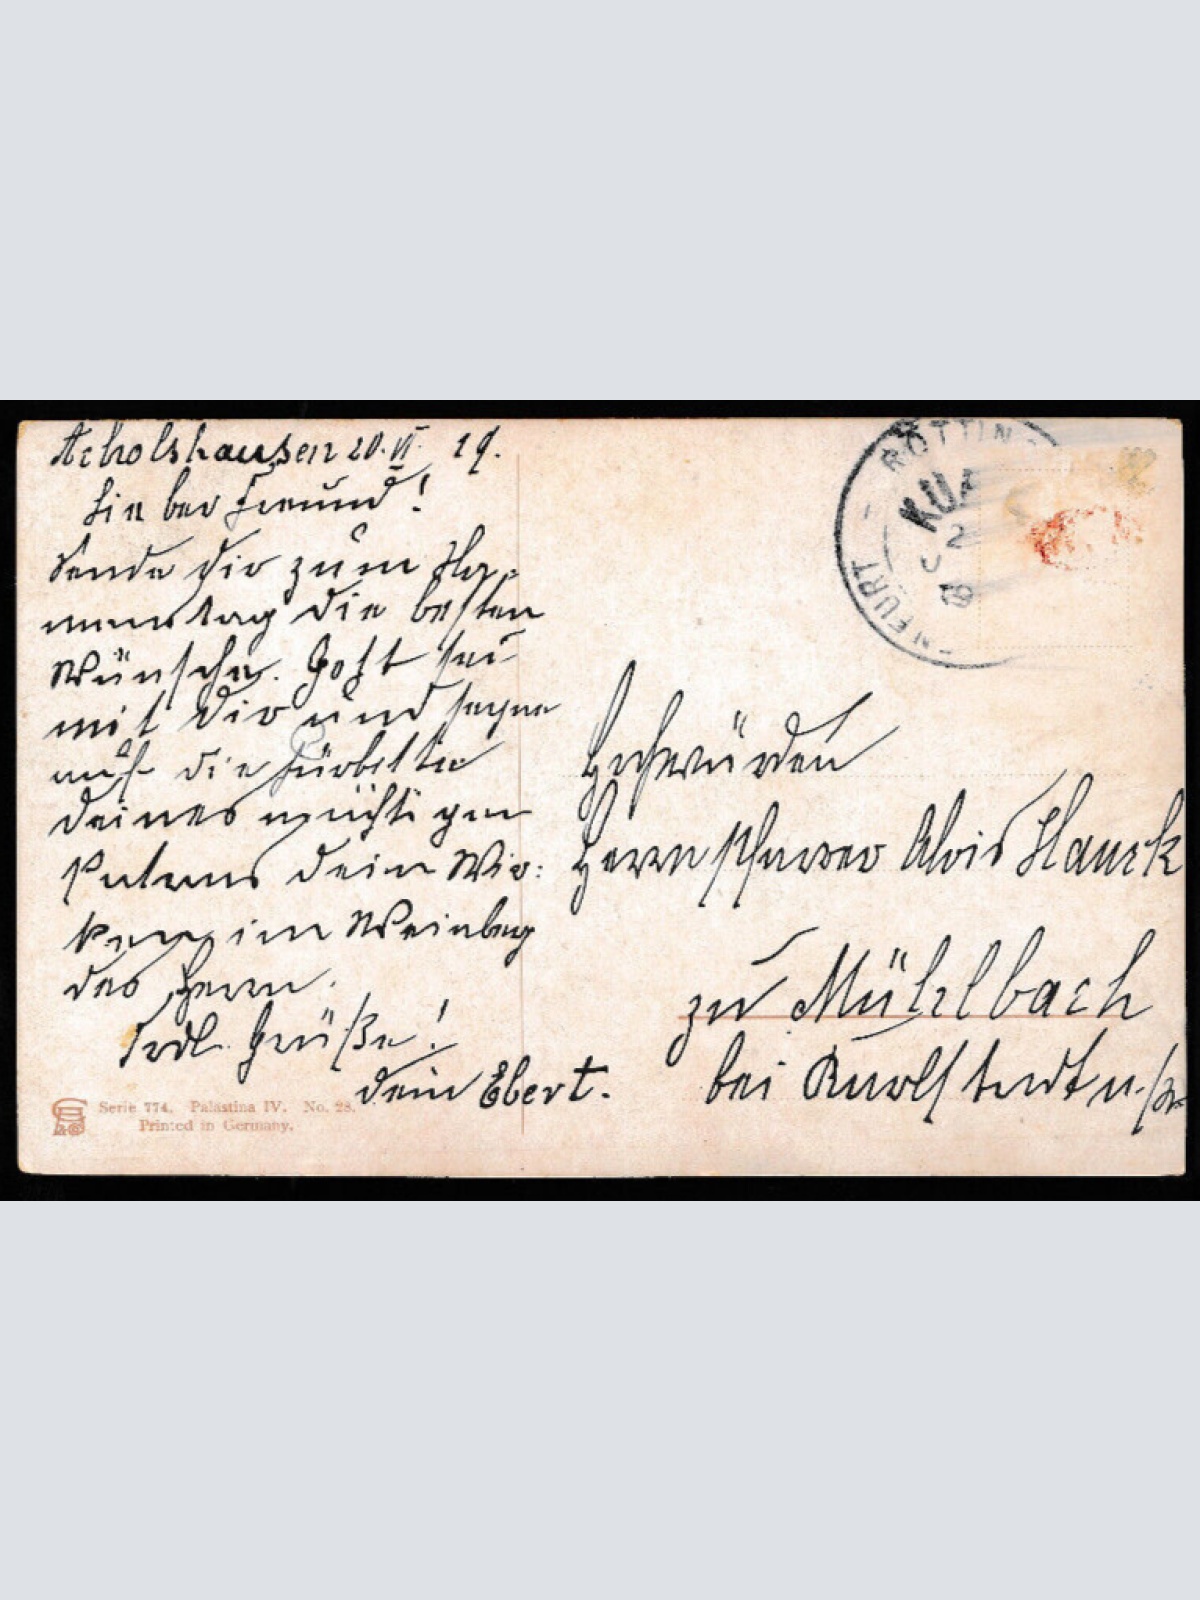 Acholshausen 20. VI. 19.
Lieber Freund!
Sende dir zum Na-
menstag die besten
Wünsche. Gott sei
mit dir und segne
auf die Fürbitte
deines mächtigen
Patrons dein Wir-
ken im Weinberg
des Herrn.
Frdl. Grüße!
dein Ebert.
Serie 774. Palästina IV. No. 28.
Printed in Germany.
RÖTTIN
NFURT
2
19
Hochwürden
Herrn Pfarrer Alois Hauck
zu Mühlbach
bei Karlstadt a./M.